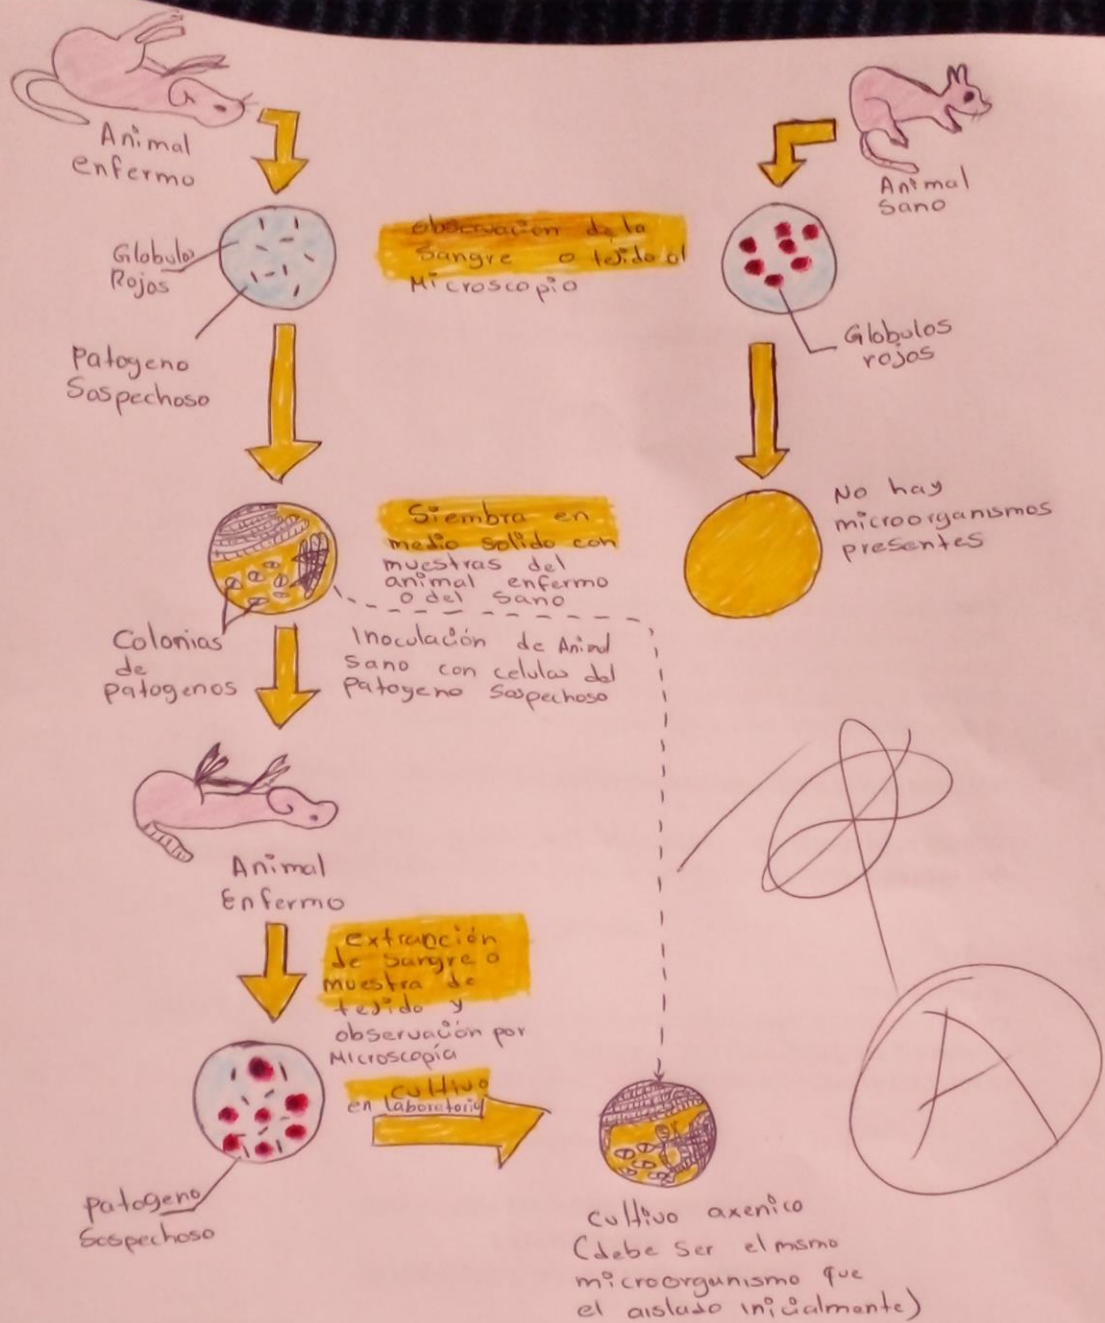 Animal
enfermo
Animal
Sano
Globulos
Rojos
observación de la
Sangre o tejido al
Microscopio
Globulos
rojos
Patogeno
Sospechoso
No hay
microorganismos
presentes
Siembra en
medio solido con
muestras del
animal enfermo
o del sano
Colonias
de
patogenos
Inoculación de Animal
Sano con celulas del
patogeno Sospechoso
Animal
Enfermo
extranción
de sangre o
muestra de
tejido y
observación por
Microscopía
cultivo
en laboratorio
patogeno
Sospechoso
cultivo axenico
(debe ser el mismo
microorganismo que
el aislado inicialmente)
A